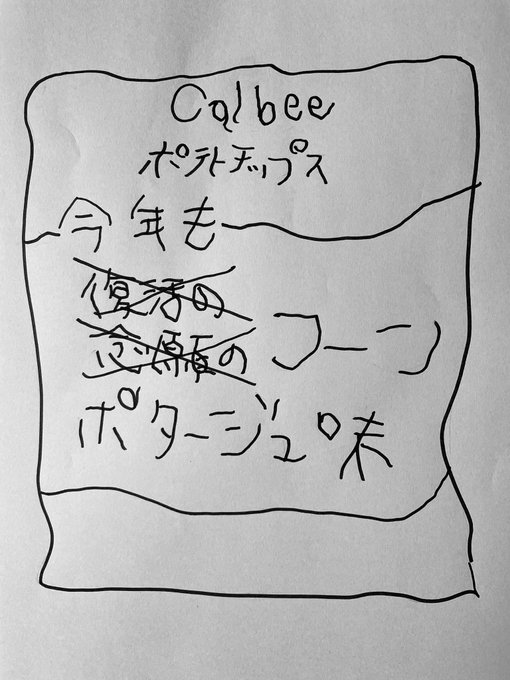 Calbee
ポテトチップス
今年も
復活の
念願の
コーン
ポタージュ味